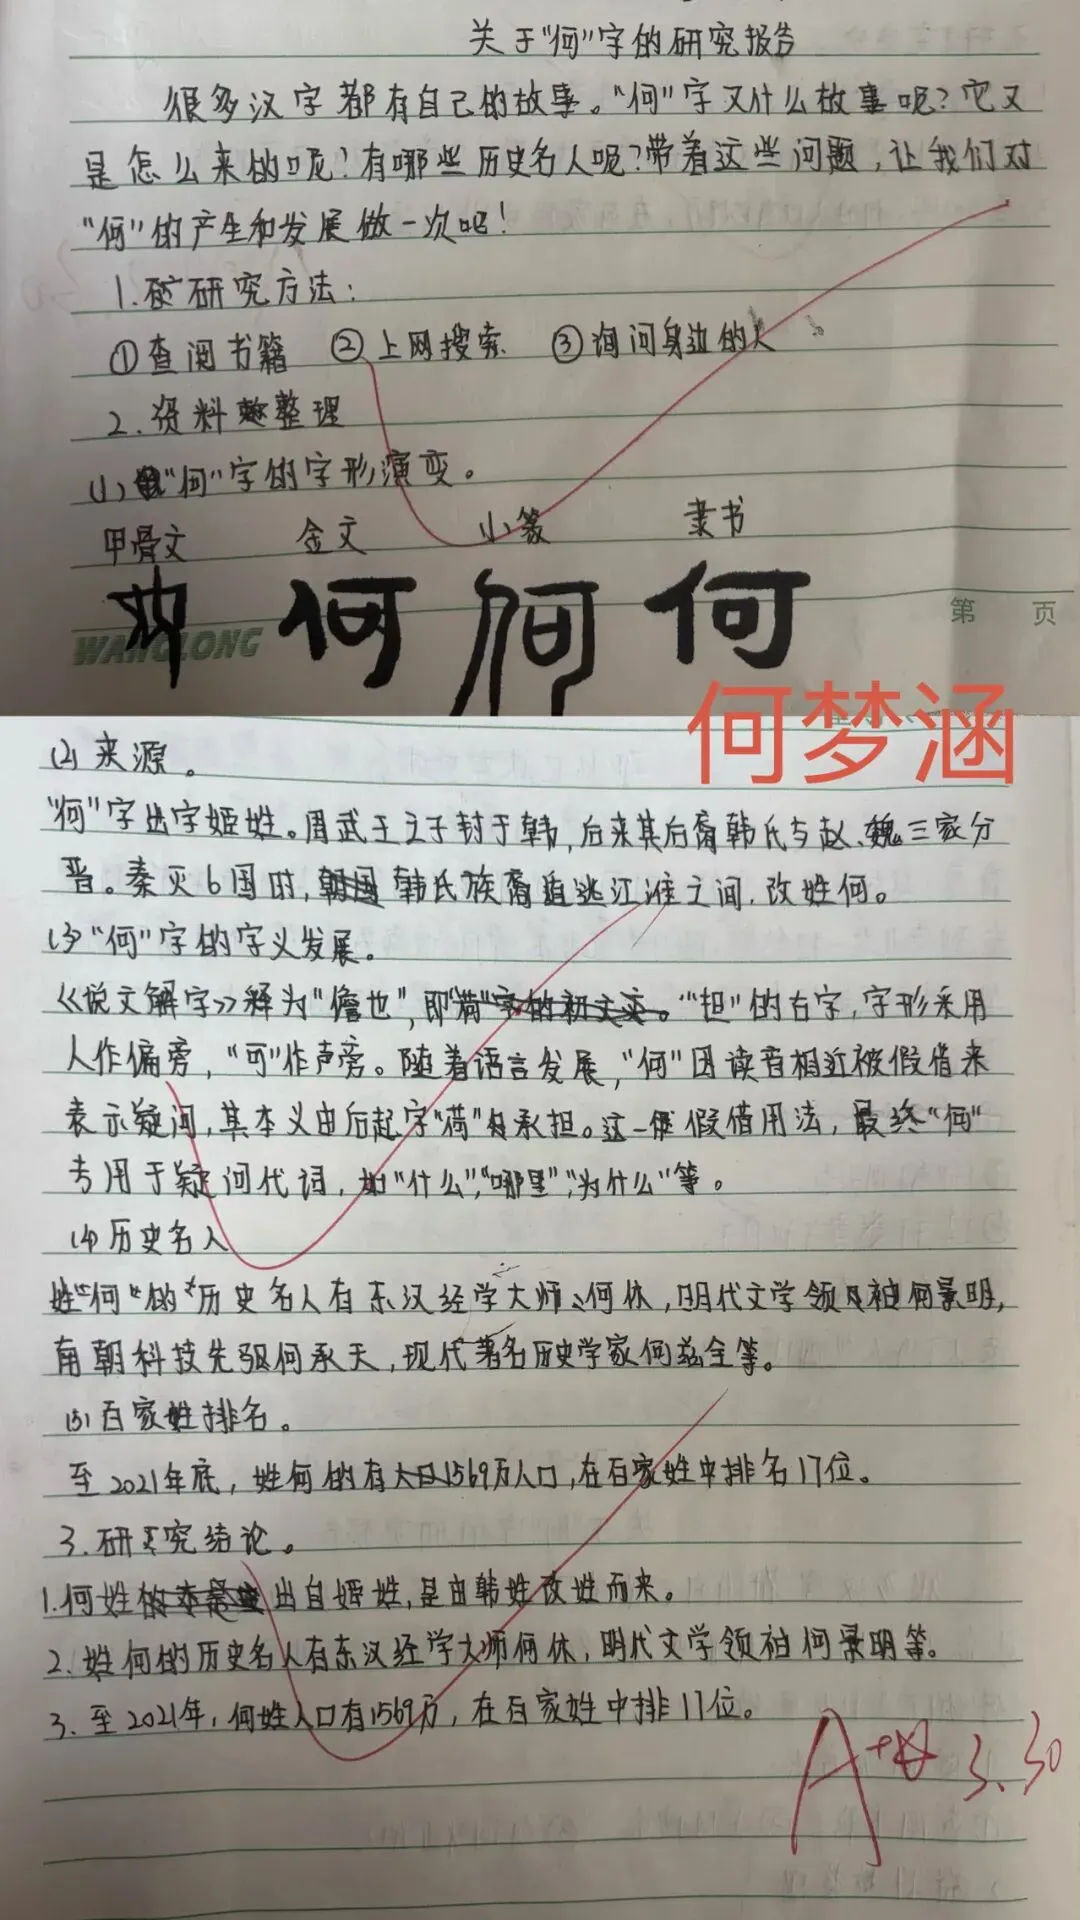 关于"何"字的研究报告
很多汉字都有自己的故事。"何"字又什么故事呢?它又
是怎么来的呢?有哪些历史名人呢?带着这些问题,让我们对
"何"的产生和发展做一次吧!
1.研究方法:
①查阅书籍 ②上网搜索 ③询问身边的人
2.资料整理
(1)"何"字的字形演变。
甲骨文 金文 小篆 隶书
何 何 何
WANGLONG 第 页
何梦涵
(2)来源。
"何"字出字姬姓。周武王之子封于韩,后来其后裔韩氏与赵、魏三家分
晋。秦灭6国时,韩氏族裔逃江淮之间,改姓何。
(3)"何"字的字义发展。
《说文解字》释为"儋也",即"担"的古字,字形采用
人作偏旁,"可"作声旁。随着语言发展,"何"因读音相近被假借来
表示疑问,其本义由后起字"荷"承担。这一假借用法,最终"何"
专用于疑问代词,如"什么","哪里","为什么"等。
(4)历史名人
姓"何"的历史名人有东汉经学大师何休,明代文学领袖何景明,
南朝科技先驱何承天,现代著名历史学家何兹全等。
(5)百家姓排名。
至2021年底,姓何的有1569万人口,在百家姓中排名17位。
3.研究结论。
1.何姓出自姬姓,是由韩姓改姓而来。
2.姓何的历史名人有东汉经学大师何休,明代文学领袖何景明等。
3.至2021年,何姓人口有1569万,在百家姓中排17位。
A+ 3.30